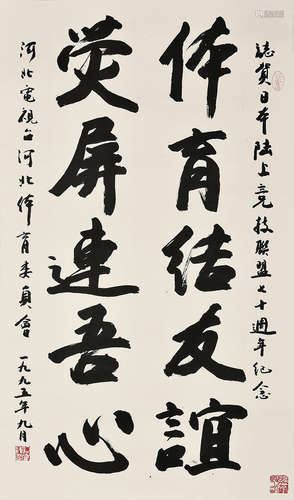 誌賀日本陸上竞技聯盟七十週年纪念
体育结友誼
荧屏連吾心
河北電視台河北体育委員會
一九九五年九月